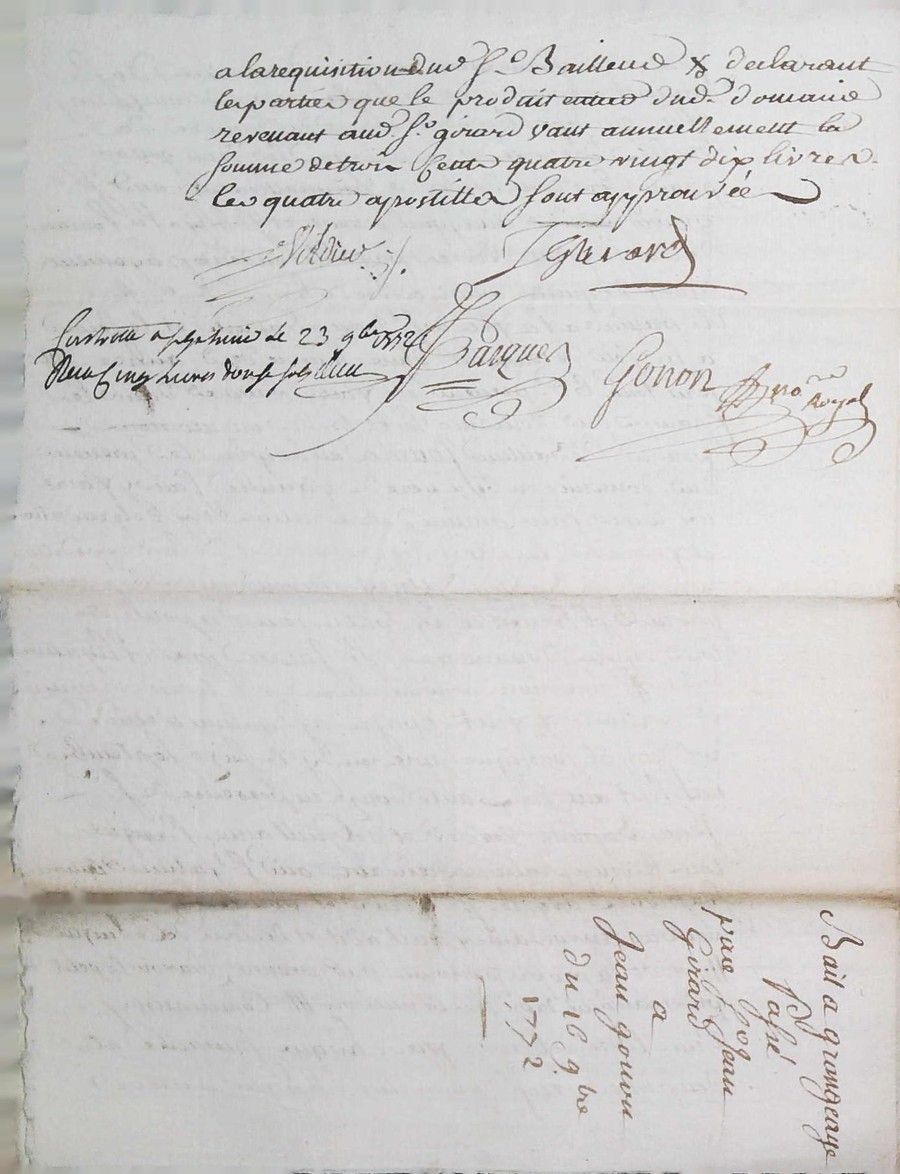 a la requisition dud. Sr. Bailleur & declarant
les parties que le produit entier dud. domaine
revenant aud. Sr. girard vaut annuellement la
somme de trois cents quatre vingt dix livres.
les quatre apostilles sont approuvées
Verdier
Girard
Controllé a le 23 9bre 1772
Recu cinq livres douze sols
Parques
Gonon
no.re Royal
Bail a grangeage
Passé
par Sr. Jean
Girard
a
Jean gonon
du 16 9bre
1772